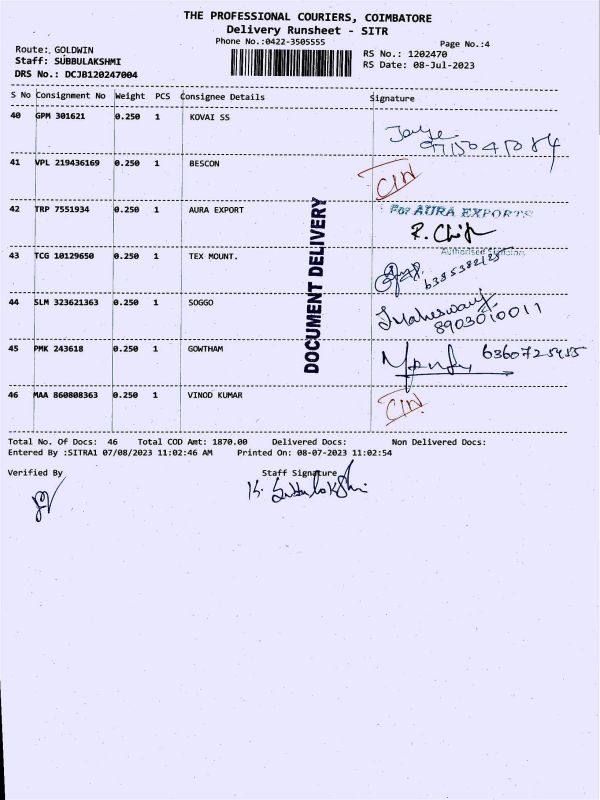 THE PROFESSIONAL COURIERS, COIMBATORE
Delivery Runsheet - SITR
Phone No.:0422-3505555
Page No.:4
Route: GOLDWIN
RS No.: 1202470
Staff: SUBBULAKSHMI
RS Date: 08-Jul-2023
DRS No.: DCJB120247004
S No Consignment No Weight PCS Consignee Details Signature
40 GPM 301621 0.250 1 KOVAI SS
41 VPL 219436169 0.250 1 BESCON CIN
42 TRP 7551934 0.250 1 AURA EXPORT For AURA EXPORTS
Authorised Signatory
43 TCG 10129650 0.250 1 TEX MOUNT.
44 SLM 323621363 0.250 1 SOGGO Maheswary
8903010011
45 PMK 243618 0.250 1 GOWTHAM
46 MAA 860808363 0.250 1 VINOD KUMAR CIN
DOCUMENT DELIVERY
Total No. Of Docs: 46 Total COD Amt: 1870.00 Delivered Docs: Non Delivered Docs:
Entered By :SITRA1 07/08/2023 11:02:46 AM Printed On: 08-07-2023 11:02:54
Verified By Staff Signature
K. Subbulakshmi